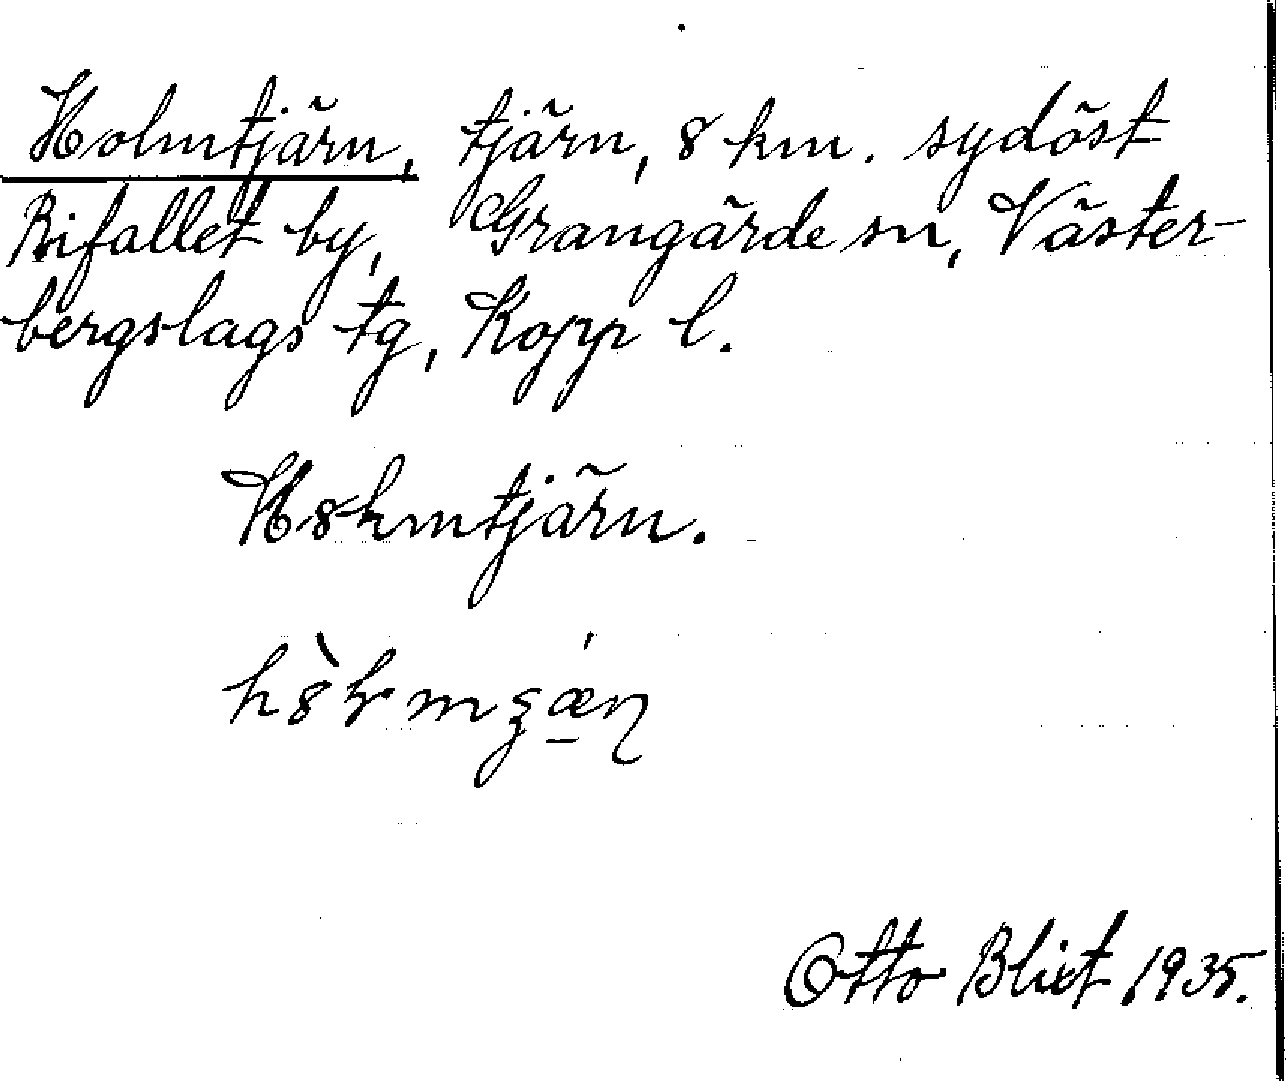 Holmtjärn, tjärn, 8 km. sydöst
Bifallet by, Grangärde sn, Väster-
bergslags tg, Kopp l.
Otto Blixt 1935.